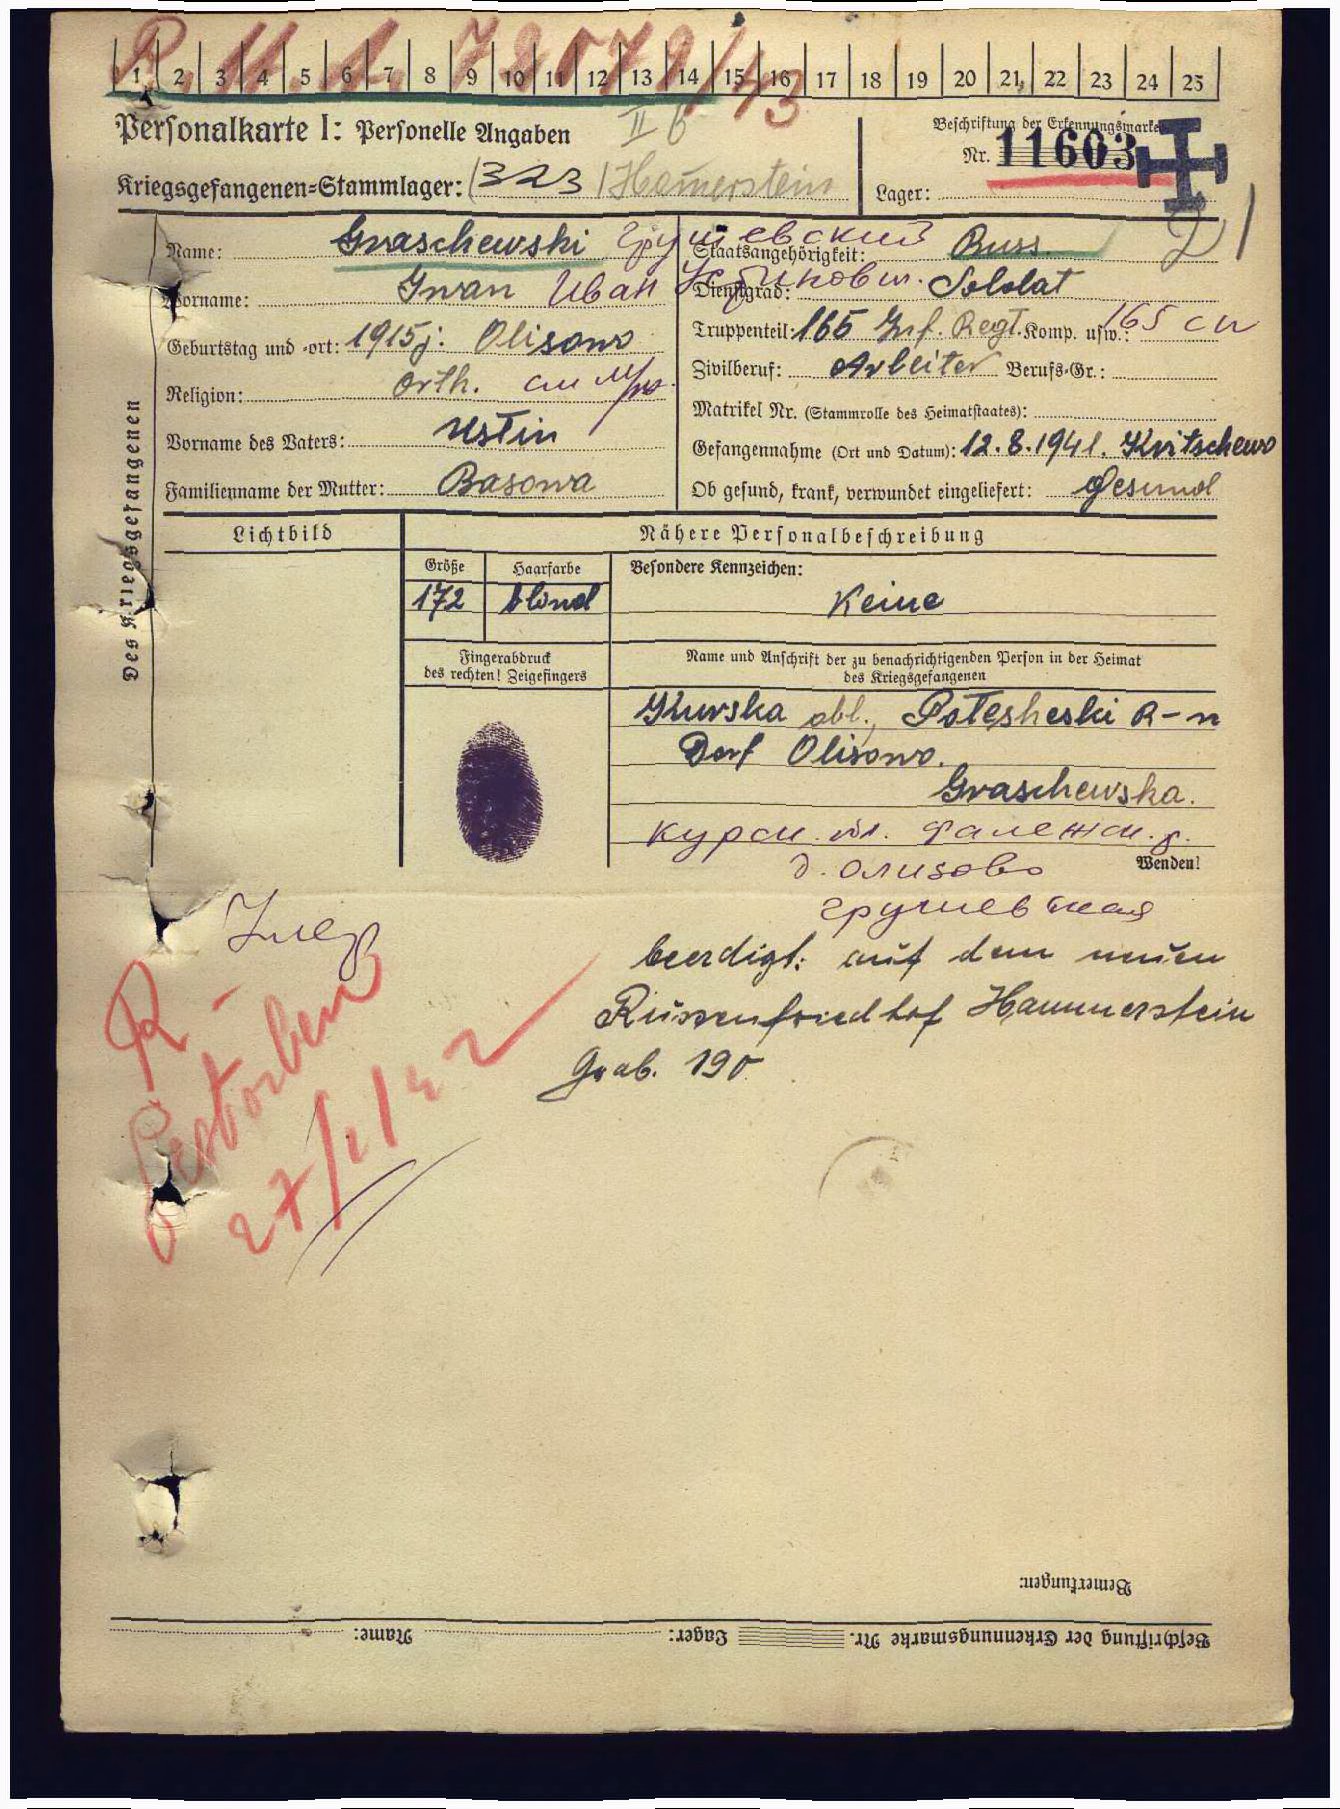 R. 11. 1. 72079/43
1 2 3 4 5 6 7 8 9 10 11 12 13 14 15 16 17 18 19 20 21 22 23 24 25
Personalkarte I: Personelle Angaben II b
Beschriftung der Erkennungsmarke
Nr. 11603
Kriegsgefangenen-Stammlager: 323 Hamerstein
Lager:
Des Kriegsgefangenen
Name: Graschewski Грушевский
Staatsangehörigkeit: Russ.
Vorname: Iwan Иван Устинович.
Dienstgrad: Soldat
Geburtstag und -ort: 1915 j: Olisowo
Truppenteil: 165 Inf. Regt. Komp. usw.: 165 сп
Religion: orth.
Zivilberuf: Arbeiter Berufs-Gr.:
Matrikel Nr. (Stammrolle des Heimatstaates):
Vorname des Vaters: Ustin
Gefangennahme (Ort und Datum): 12.8.1941. Kritschewo
Familienname der Mutter: Basowa
Ob gesund, krank, verwundet eingeliefert: Gesund
Lichtbild
Nähere Personalbeschreibung
Größe Haarfarbe Besondere Kennzeichen:
172 blond Keine
Fingerabdruck
des rechten! Zeigefingers
Name und Anschrift der zu benachrichtigenden Person in der Heimat
des Kriegsgefangenen
Kurska obl., Potesheski R-n
Dorf Olisowo.
Graschewska.
Курск. обл. Фалежск. р.
Wenden!
д. Олизово
Грушевская
Умер
R -
Gestorben
27/1/42
beerdigt: auf dem neuen
Russenfriedhof Hammerstein
Grab. 190
Bemerkungen:
Beschriftung der Erkennungsmarke Nr. Lager: Name: